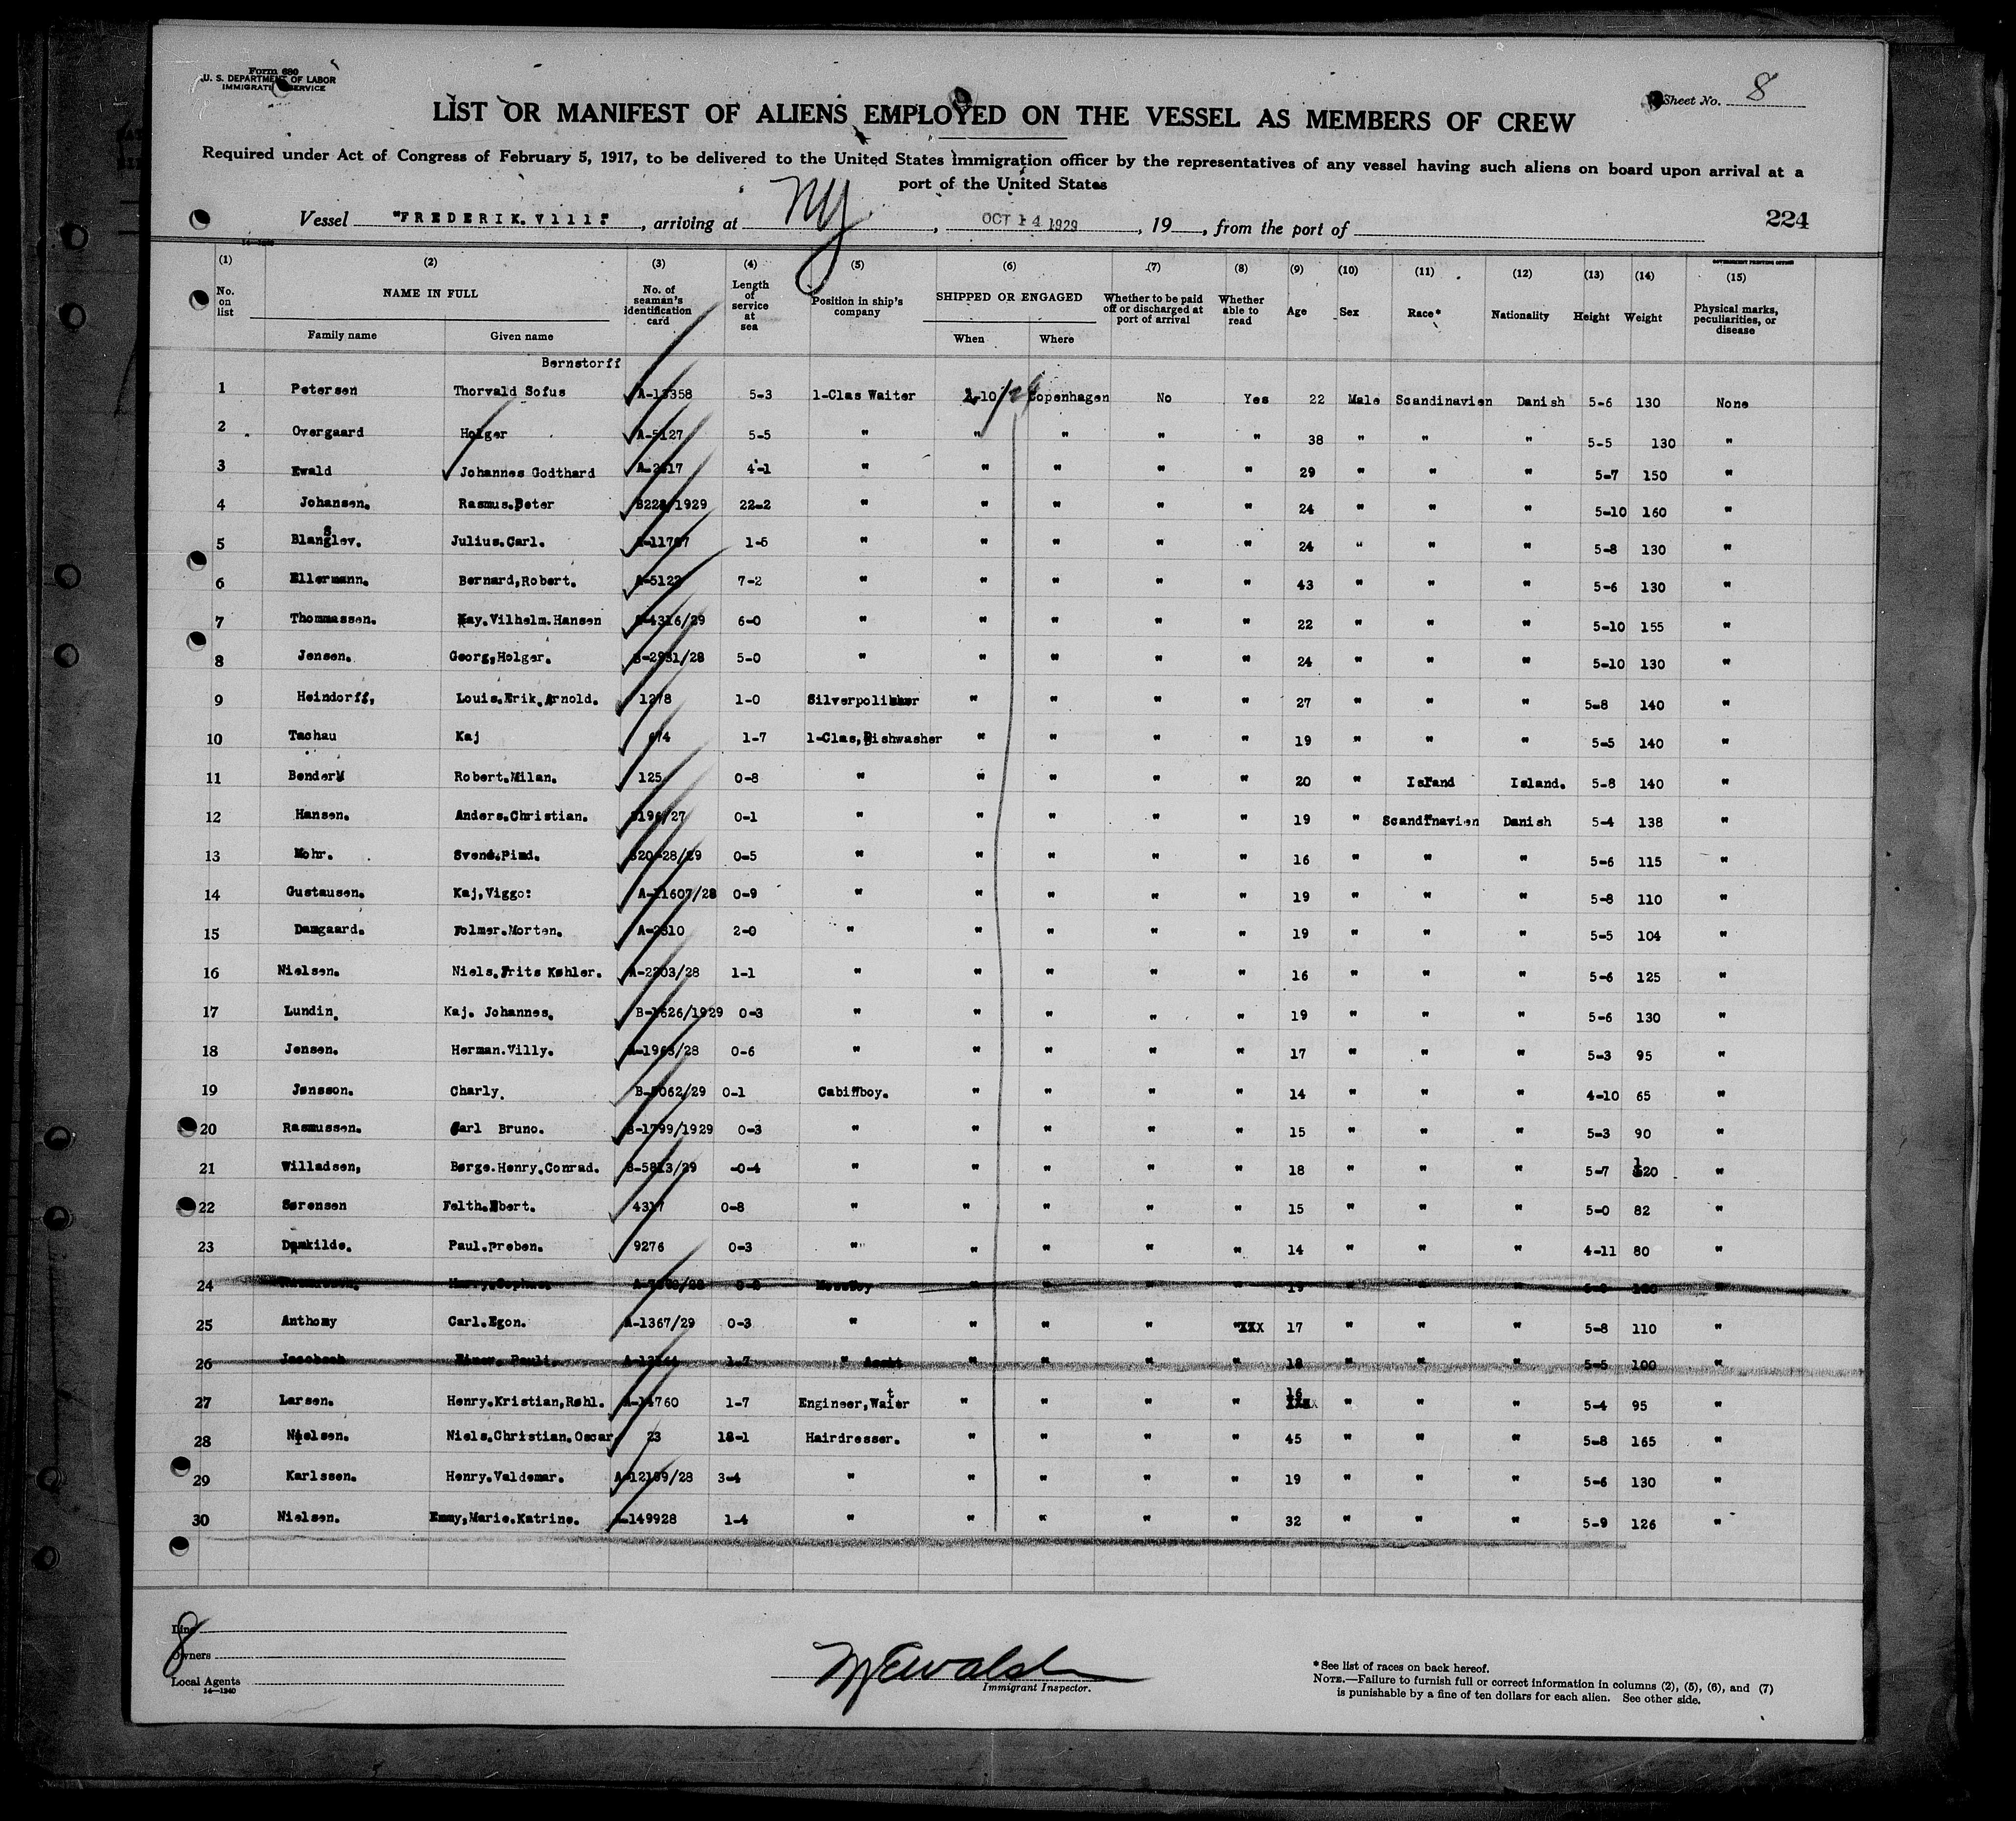 Form 680
U. S. DEPARTMENT OF LABOR
IMMIGRATION SERVICE
Sheet No. 8
LIST OR MANIFEST OF ALIENS EMPLOYED ON THE VESSEL AS MEMBERS OF CREW
Required under Act of Congress of February 5, 1917, to be delivered to the United States immigration officer by the representatives of any vessel having such aliens on board upon arrival at a
port of the United States
Vessel "FREDERIK.V111", arriving at NY, OCT 14 1929, 19, from the port of
224
(1) (2) (3) (4) (5) (6) (7) (8) (9) (10) (11) (12) (13) (14) (15)
No. on list NAME IN FULL Family name Given name No. of seaman's identification card Length of service at sea Position in ship's company SHIPPED OR ENGAGED When Where Whether to be paid off or discharged at port of arrival Whether able to read Age Sex Race* Nationality Height Weight Physical marks, peculiarities, or disease
Bernstorff
1 Petersen Thorvald Sofus 5-3 1-Clas Waiter Copenhagen No Yes 22 Male Scandinavien Danish 5-6 130 None
2 Overgaard Holger A-5127 5-5 " " " " " 38 " " " 5-5 130 "
3 Ewald Johannes Godthard 4-1 " " " " " 29 " " " 5-7 150 "
4 Johansen. Rasmus.Peter 22-2 " " " " " 24 " " " 5-10 160 "
5 Blangslev. Julius.Carl. 1-6 " " " " " 24 " " " 5-8 130 "
6 Ellermann. Bernard,Robert. 7-2 " " " " " 43 " " " 5-6 130 "
7 Thommassen. Kay.Vilhelm.Hansen 6-0 " " " " " 22 " " " 5-10 155 "
8 Jensen. Georg,Holger. 5-0 " " " " " 24 " " " 5-10 130 "
9 Heindorff, Louis.Erik.Arnold. 1278 1-0 Silverpolisher " " " " 27 " " " 5-8 140 "
10 Tachau Kaj 674 1-7 1-Clas,Dishwasher " " " " 19 " " " 5-5 140 "
11 Bender Robert.Milan. 0-8 " " " " " 20 " Island Island. 5-8 140 "
12 Hansen. Anders.Christian. 0-1 " " " " " 19 " Scandinavien Danish 5-4 138 "
13 Mohr. 0-5 " " " " " 16 " " " 5-6 115 "
14 Gustausen. Kaj,Viggo: A-11607/28 0-9 " " " " " 19 " " " 5-8 110 "
15 Damgaard. Folmer.Morten. 2-0 " " " " " 19 " " " 5-5 104 "
16 Nielsen. Niels.Frits Køhler. 1-1 " " " " " 16 " " " 5-6 125 "
17 Lundin. Kaj. Johannes. B-1626/1929 0-3 " " " " " 19 " " " 5-6 130 "
18 Jensen. Herman.Villy. A-1963/28 0-6 " " " " " 17 " " " 5-3 95 "
19 Jønsson. Charly. 0-1 Cabinboy. " " " " 14 " " " 4-10 65 "
20 Rasmussen. Carl Bruno. B-1799/1929 0-3 " " " " " 15 " " " 5-3 90 "
21 Willadsen, Børge.Henry.Conrad. B-5813/29 -0-4 " " " " " 18 " " " 5-7 120 "
22 Sørensen Felth.Ebert. 4317 0-8 " " " " " 15 " " " 5-0 82 "
23 Damkilde. Paul.Preben. 9276 0-3 " " " " " 14 " " " 4-11 80 "
24 Messboy " " " " 19 " " " "
25 Anthomy Carl.Egon. A-1367/29 0-3 " " " " "XXX 17 " " " 5-8 110 "
26 1-7 " Assit " " " " 18 " " " 5-5 100 "
27 Larsen. Henry.Kristian,Røhl. A-14760 1-7 Engineer,Waiter " " " " 16 " " " 5-4 95 "
28 Nielsen. Niels.Christian.Oscar. 23 18-1 Hairdresser. " " " " 45 " " " 5-8 165 "
29 Karlssen. Henry.Valdemar. A-12189/28 3-4 " " " " " 19 " " " 5-6 130 "
30 Nielsen. Emmy,Marie.Katrine. A-149928 1-4 " " " " " 32 " " " 5-9 126 "
8
Line
Owners
Local Agents
14—1240
Immigrant Inspector.
* See list of races on back hereof.
NOTE.—Failure to furnish full or correct information in columns (2), (5), (6), and (7)
is punishable by a fine of ten dollars for each alien. See other side.